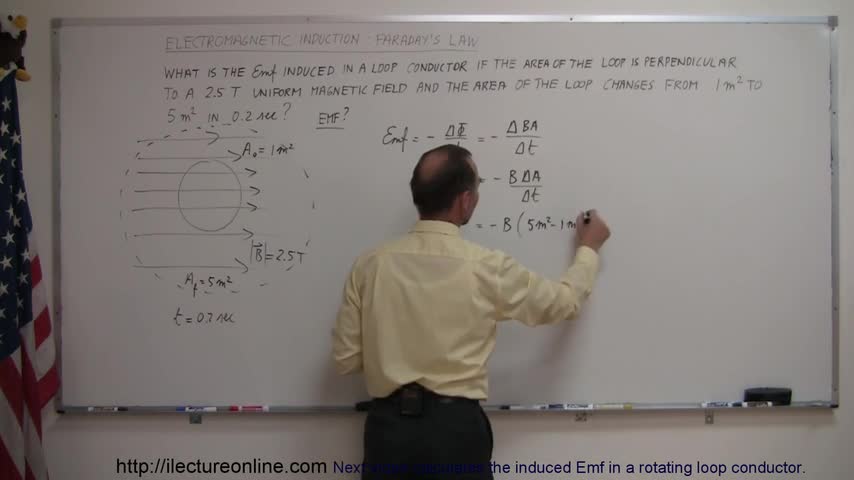 ELECTROMAGNETIC INDUCTION: FARADAY'S LAW
WHAT IS THE Emf INDUCED IN A LOOP CONDUCTOR IF THE AREA OF THE LOOP IS PERPENDICULAR
TO A 2.5 T UNIFORM MAGNETIC FIELD AND THE AREA OF THE LOOP CHANGES FROM 1m² TO
5 m² IN 0.2 sec?
EMF?
A₀ = 1m²
|B⃗| = 2.5 T
A_f = 5m²
t = 0.2 sec
Emf = - ΔΦ = - ΔBA / Δt
= - B ΔA / Δt
= - B ( 5m² - 1m
http://ilectureonline.com Next calculates the induced Emf in a rotating loop conductor.